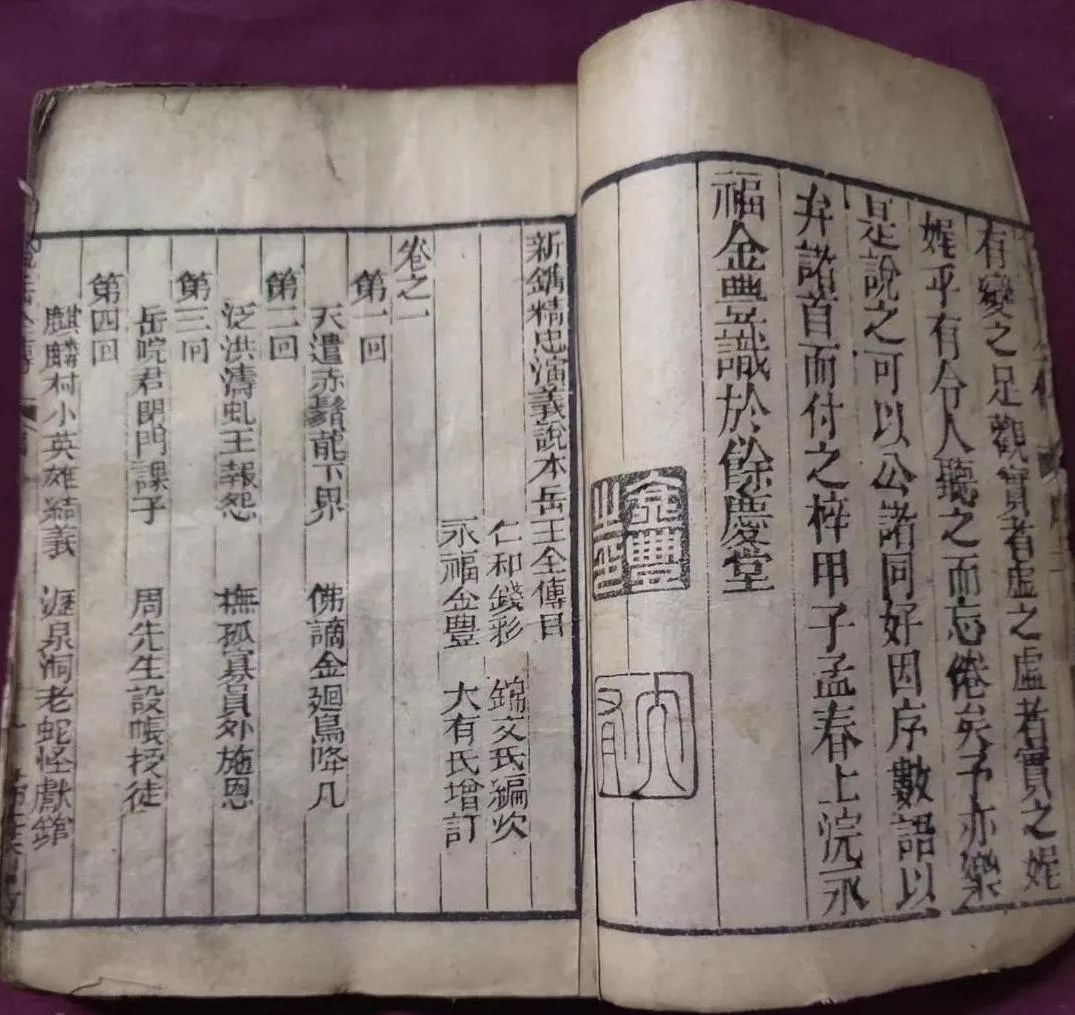 有變之足觀實者虛之虛者實之娓
娓乎有令人聽之而忘倦矣予亦樂
是說之可以公諸同好因序數語以
弁諸首而付之梓甲子孟春上浣永
福金豐識於餘慶堂
金豐之印
大有
新鐫精忠演義說本岳王全傳目
仁和錢彩 錦文氏編次
永福金豐 大有氏增訂
卷之一
第一回
天遣赤鬚龍下界 佛謫金翅鳥降凡
第二回
泛洪濤虬王報怨 撫孤寡員外施恩
第三回
岳院君閉門課子 周先生設帳授徒
第四回
麒麟村小英雄結義 瀝泉洞老蛇怪獻鎗